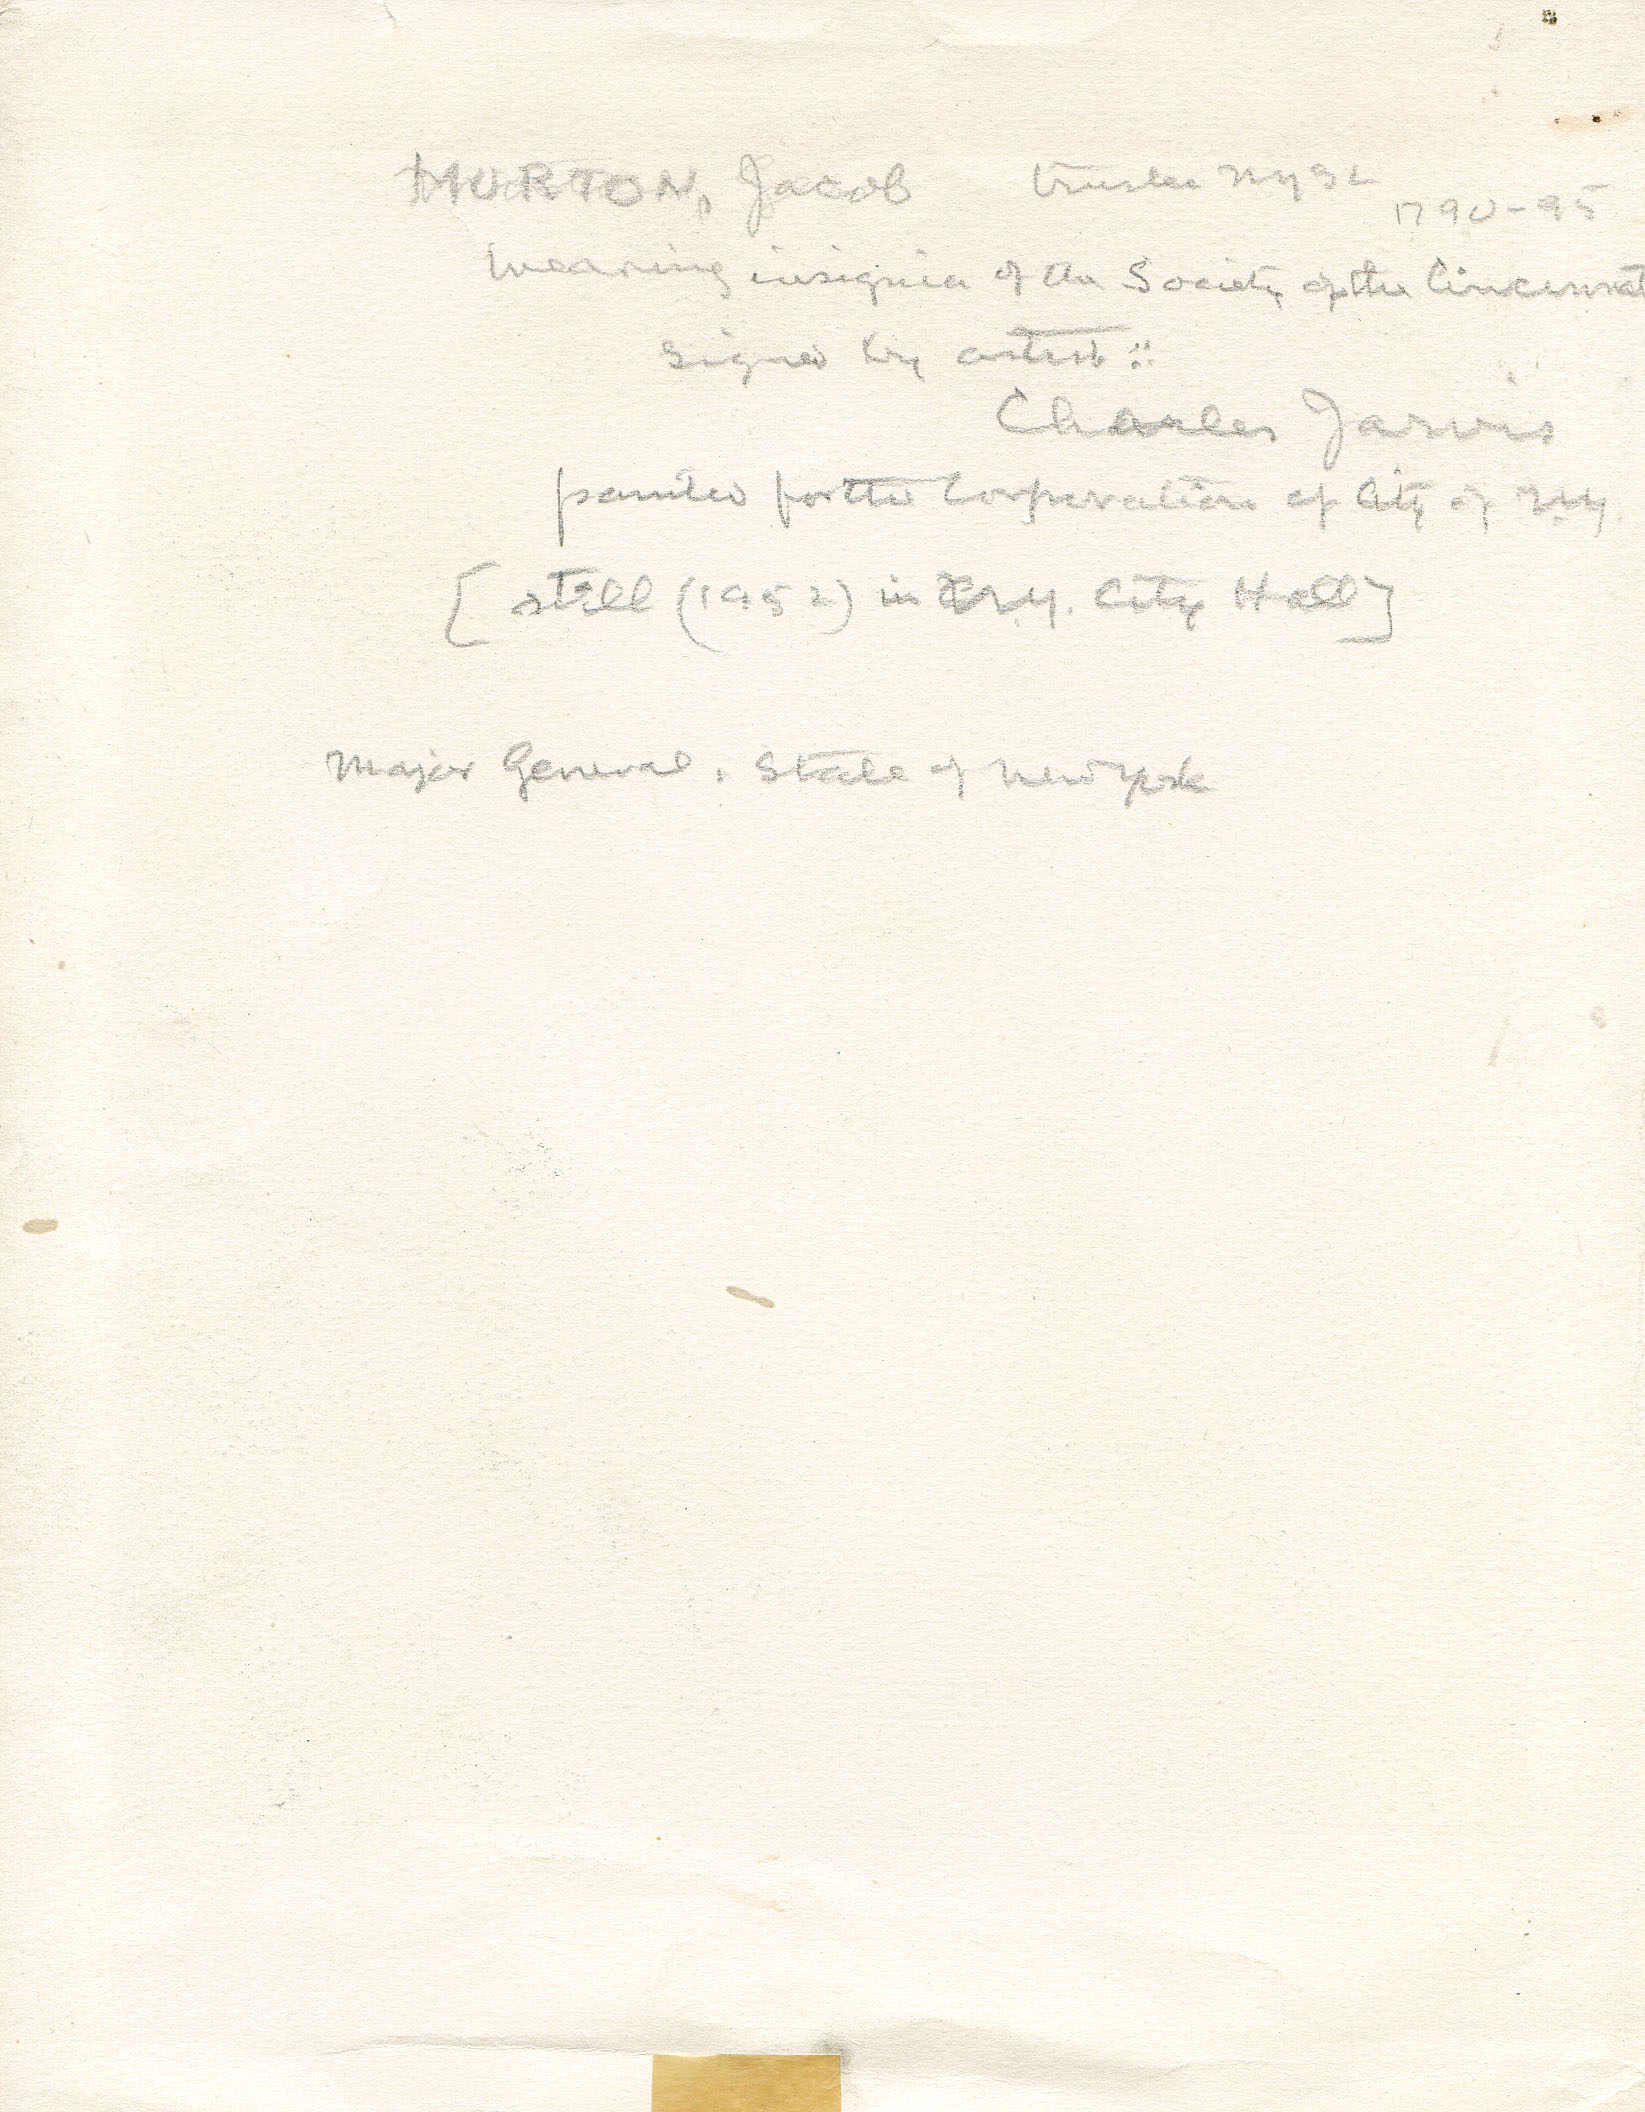 MORTON, Jacob trustee NYSL
1790-95
wearing insignia of the Society of the Cincinnati
signed by artist:
Charles Jarvis
painted for the Corporation of City of N.Y.
[still (1952) in N.Y. City Hall]
Major General, State of New York